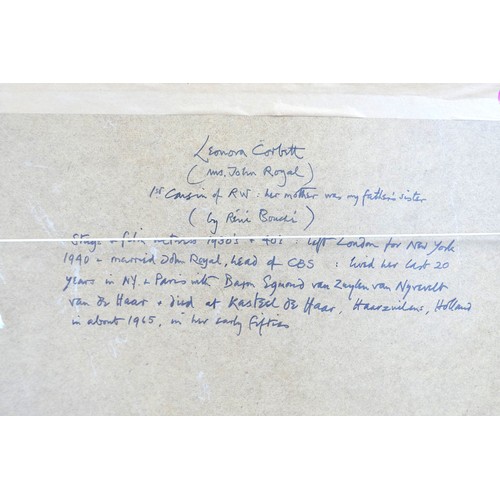 Leonora Corbett
(Mrs. John Royal)
1st Cousin of RW: her mother was my father's sister
(by Réné Bouché)
Stage & film actress 1930's & 40's: left London for New York
1940 & married John Royal, head of CBS : lived her last 20
years in N.Y. & Paris with Baron Egmond van Zuylen van Nyevelt
van de Haar & died at Kasteel de Haar, Haarzuilens, Holland
in about 1965, in her early fifties